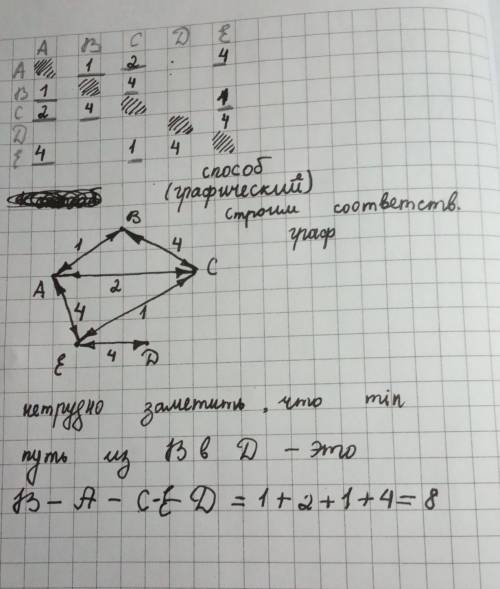 A B C D E
A 1 2 4
B 1 4
C 2 4 1
D 4
E 4 1 4
способ
(графический)
строим соответств.
граф
B
1 4
A 2 C
4 1
E 4 D
нетрудно заметить, что min
путь из B в D – это
B – A – C-E-D = 1+2+1+4=8